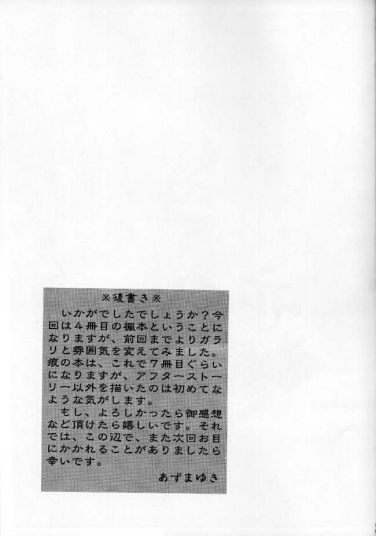 ※後書き※
いかがでしたでしょうか?今
回は4冊目の楓本ということに
なりますが、前回までよりガラ
リと雰囲気を変えてみました。
痕の本は、これで7冊目ぐらい
になりますが、アフターストー
リー以外を描いたのは初めてな
ような気がします。
もし、よろしかったら御感想
など頂けたら嬉しいです。それ
では、この辺で、また次回お目
にかかれることがありましたら
幸いです。
あずまゆき